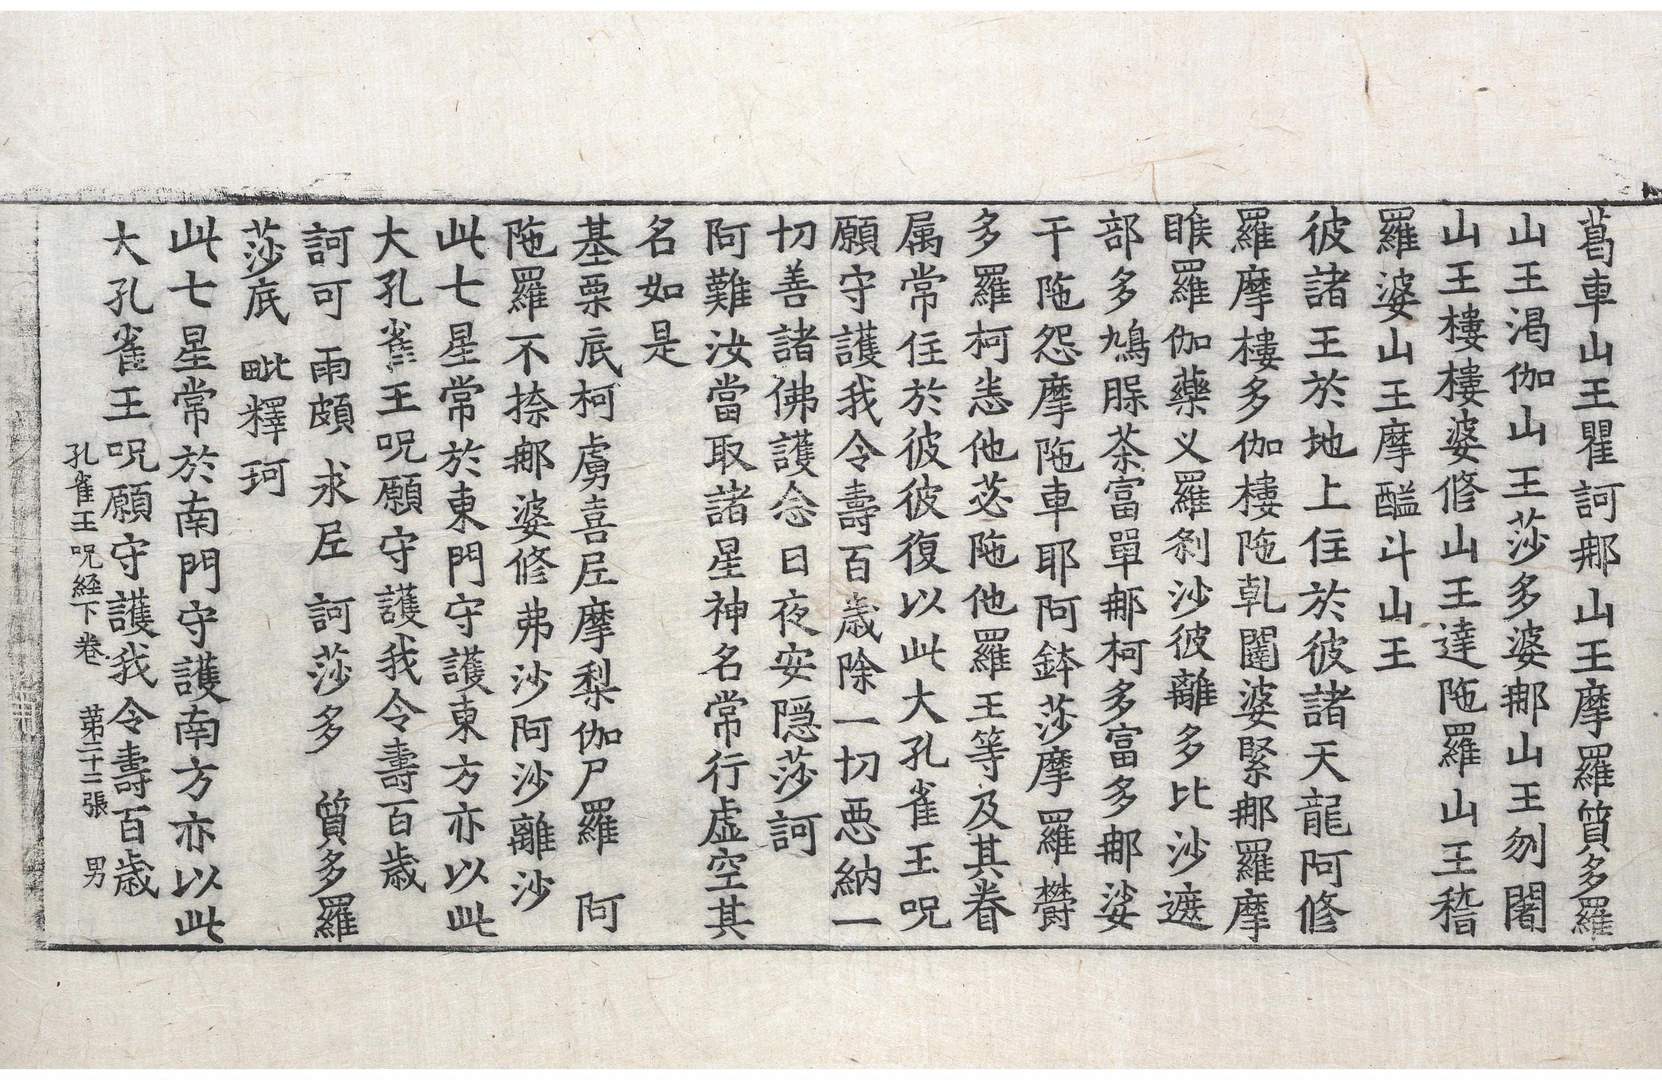 葛車山王瞿訶那山王摩羅質多羅
山王渇伽山王莎多婆那山王刎闍
山王樓樓婆修山王達陁羅山王嵇
羅婆山王摩醯斗山王
彼諸王於地上住於彼諸天龍阿修
羅摩樓多伽樓陁乹闥婆緊那羅摩
睺羅伽藥义羅刹沙彼離多比沙遮
部多鳩脵茶富單那柯多富多那娑
干陁怨摩陁車耶阿鉢莎摩羅欝
多羅柯恙他苾陁他他羅王等及其眷
属常住於彼彼復以此大孔雀王呪
願守護我令壽百歳除一切悪納一
切善諸佛護念日夜安隠莎訶
阿難汝當取諸星神名常行虚空其
名如是
基栗底柯虜喜𡰱摩梨伽尸羅 阿
陁羅不捺那婆修弗沙阿沙離沙
此七星常於東門守護東方亦以此
大孔雀王呪願守護我令壽百歳
訶可 雨頗 求𡰱 訶莎多 質多羅
莎底 毗釋珂
此七星常於南門守護南方亦以此
大孔雀王呪願守護我令壽百歳
孔雀王呪経下卷 苐二十二張 男